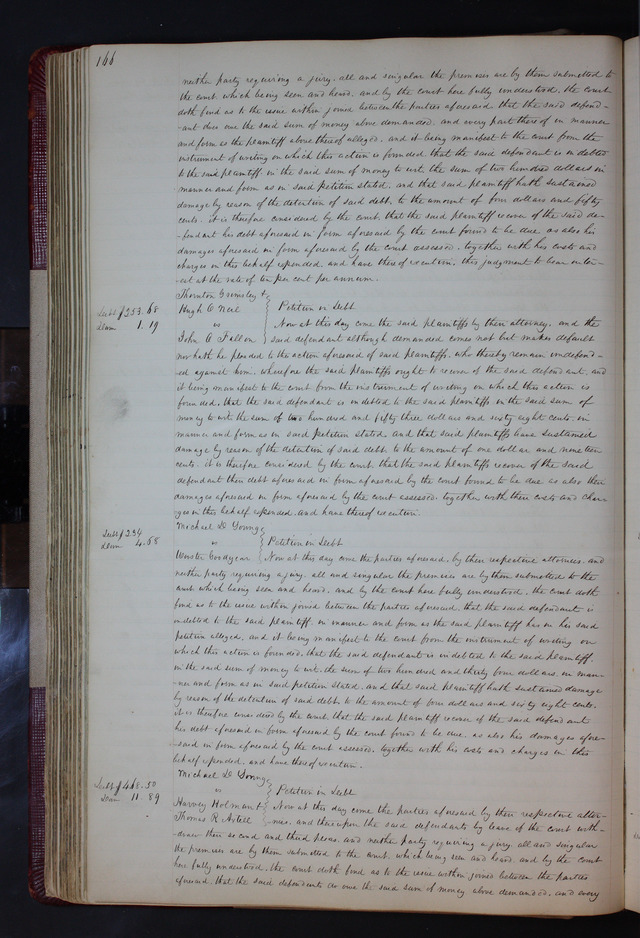 166
neither party requiring a jury. all and singular the premises are by them submitted to
the court. which being seen and heard, and by the court here fully understood, the court
doth find as to the issue within joined between the parties aforesaid that the said defend-
-ant does owe the said sum of money above demanded, and every part thereof in manner
and form as the plaintiff above thereof alleged, and it being manifest to the court from the
instrument of writing on which this action is founded, that the said defendant is indebted
to the said plaintiff, in the said sum of money to wit, the sum of two hundred dollars in
manner and form as in said petition stated, and that said plaintiff hath sustained
damage by reason of the detention of said debt, to the amount of four dollars and fifty
cents. it is therefore considered by the court, that the said plaintiff recover of the said de-
-fendant his debt aforesaid in form aforesaid by the court found to be due as also his
damages aforesaid in form aforesaid by the court assessed, together with his costs and
charges in this behalf expended. and have thereof execution. this judgment to bear inter-
-est at the rate of ten per cent per annum.
Thornton Grimsley &
Debt $253.68 Hugh O Neil Petition in Debt
Dam 1.19 vs Now at this day come the said plaintiffs by their attorney, and the
John O Fallon said defendant although demanded comes not but makes default
nor hath he pleaded to the action aforesaid of said plaintiffs, who thereby remain undefend-
ed against him. wherefore the said plaintiffs ought to recover of the said defendant. and
it being manifest to the court from the instrument of writing on which this action is
founded, that the said defendant is indebted to the said plaintiffs in the said sum of
money to wit the sum of two hundred and fifty three dollars and sixty eight cents. in
manner and form as in said petition stated, and that said plaintiffs have sustained
damage by reason of the detention of said debt to the amount of one dollar and nineteen
cents. it is therefore considered by the court, that the said plaintiffs recover of the said
defendant their debt aforesaid in form aforesaid by the court found to be due as also their
damages aforesaid in form aforesaid by the court assessed, together with their costs and char-
ges in this behalf expended. and have thereof execution.
Michael D Young
Debt $234 vs Petition in Debt
Dam 4.68 Wooster Goodyear Now at this day come the parties aforesaid, by their respective attornies. and
neither party requiring a jury. all and singular the premises are by them submitted to the
court. which being seen and heard, and by the court here fully understood, the court doth
find as to the issue within joined between the parties aforesaid, that the said defendant is
indebted to the said plaintiff, in manner and form as the said plaintiff has in his said
petition alleged, and it being manifest to the court from the instrument of writing on
which this action is founded, that the said defendant is indebted to the said plaintiff,
in the said sum of money to wit, the sum of two hundred and thirty four dollars, in man-
ner and form as in said petition stated, and that said plaintiff hath sustained damage
by reason of the detention of said debt, to the amount of four dollars and sixty eight cents.
it is therefore considered by the court, that the said plaintiff recover of the said defendant
his debt aforesaid in form aforesaid by the court found to be due, as also his damages afore-
-said in form aforesaid by the court assessed, together with his costs and charges in this
behalf expended, and have thereof execution.
Michael D Young
Debt $468.50 vs Petition in Debt
Dam 11.89 Harvey Holman & Now at this day come the parties aforesaid by their respective attor-
Thomas R nies. and thereupon the said defendants by leave of the court with-
-draw their second and third pleas. and neither party requiring a jury all and singular
the premises are by them submitted to the court. which being seen and heard and by the court
here fully understood, the court doth find as to the issue within joined between the parties
aforesaid, that the said defendants do owe the said sum of money above demanded, and every